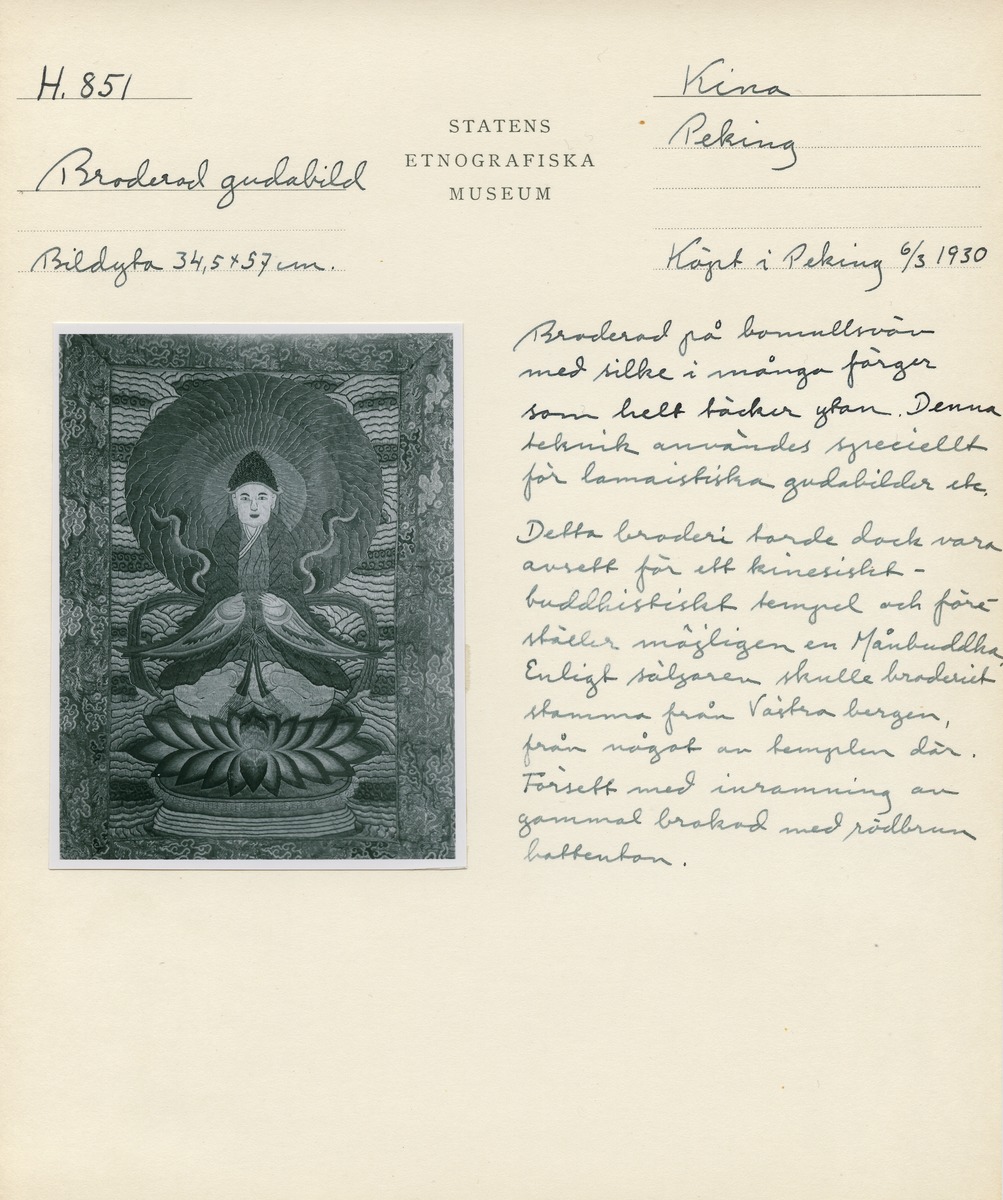 H. 851
Broderad gudabild
Bildyta 34,5 x 57 cm.
STATENS
ETNOGRAFISKA
MUSEUM
Kina
Peking
Köpt i Peking 6/3 1930
Broderad på bomullsväv
med silke i många färger
som helt täcker ytan. Denna
teknik användes speciellt
för lamaistiska gudabilder etc.
Detta broderi torde dock vara
avsett för ett kinesiskt-
buddhistiskt tempel och före-
ställer möjligen en Månbuddha.
Enligt säljaren skulle broderiet
stamma från Västra bergen,
från något av templen där.
Försett med inramning av
gammal brokad med rödbrun
bottenton.